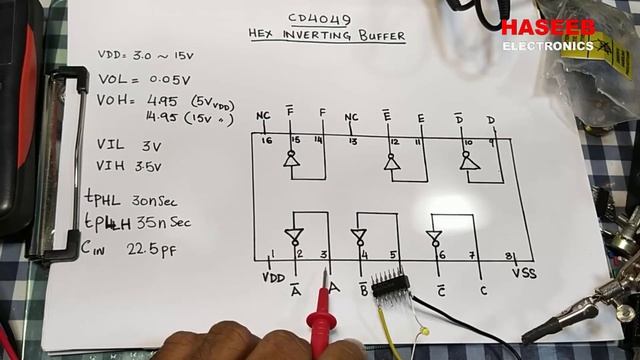 CD4049
HEX INVERTING BUFFER
HASEEB
ELECTRONICS
VDD = 3.0 ~ 15V
VOL = 0.05V
VOH = 4.95 (5V VDD)
14.95 (15V 〃)
VIL 3V
VIH 3.5V
tPHL 30nSec
tPLH 35nSec
CIN 22.5PF
NC F̅ F NC E̅ E D̅ D
16 15 14 13 12 11 10 9
1 2 3 4 5 6 7 8
VDD A̅ A B̅ C̅ C VSS